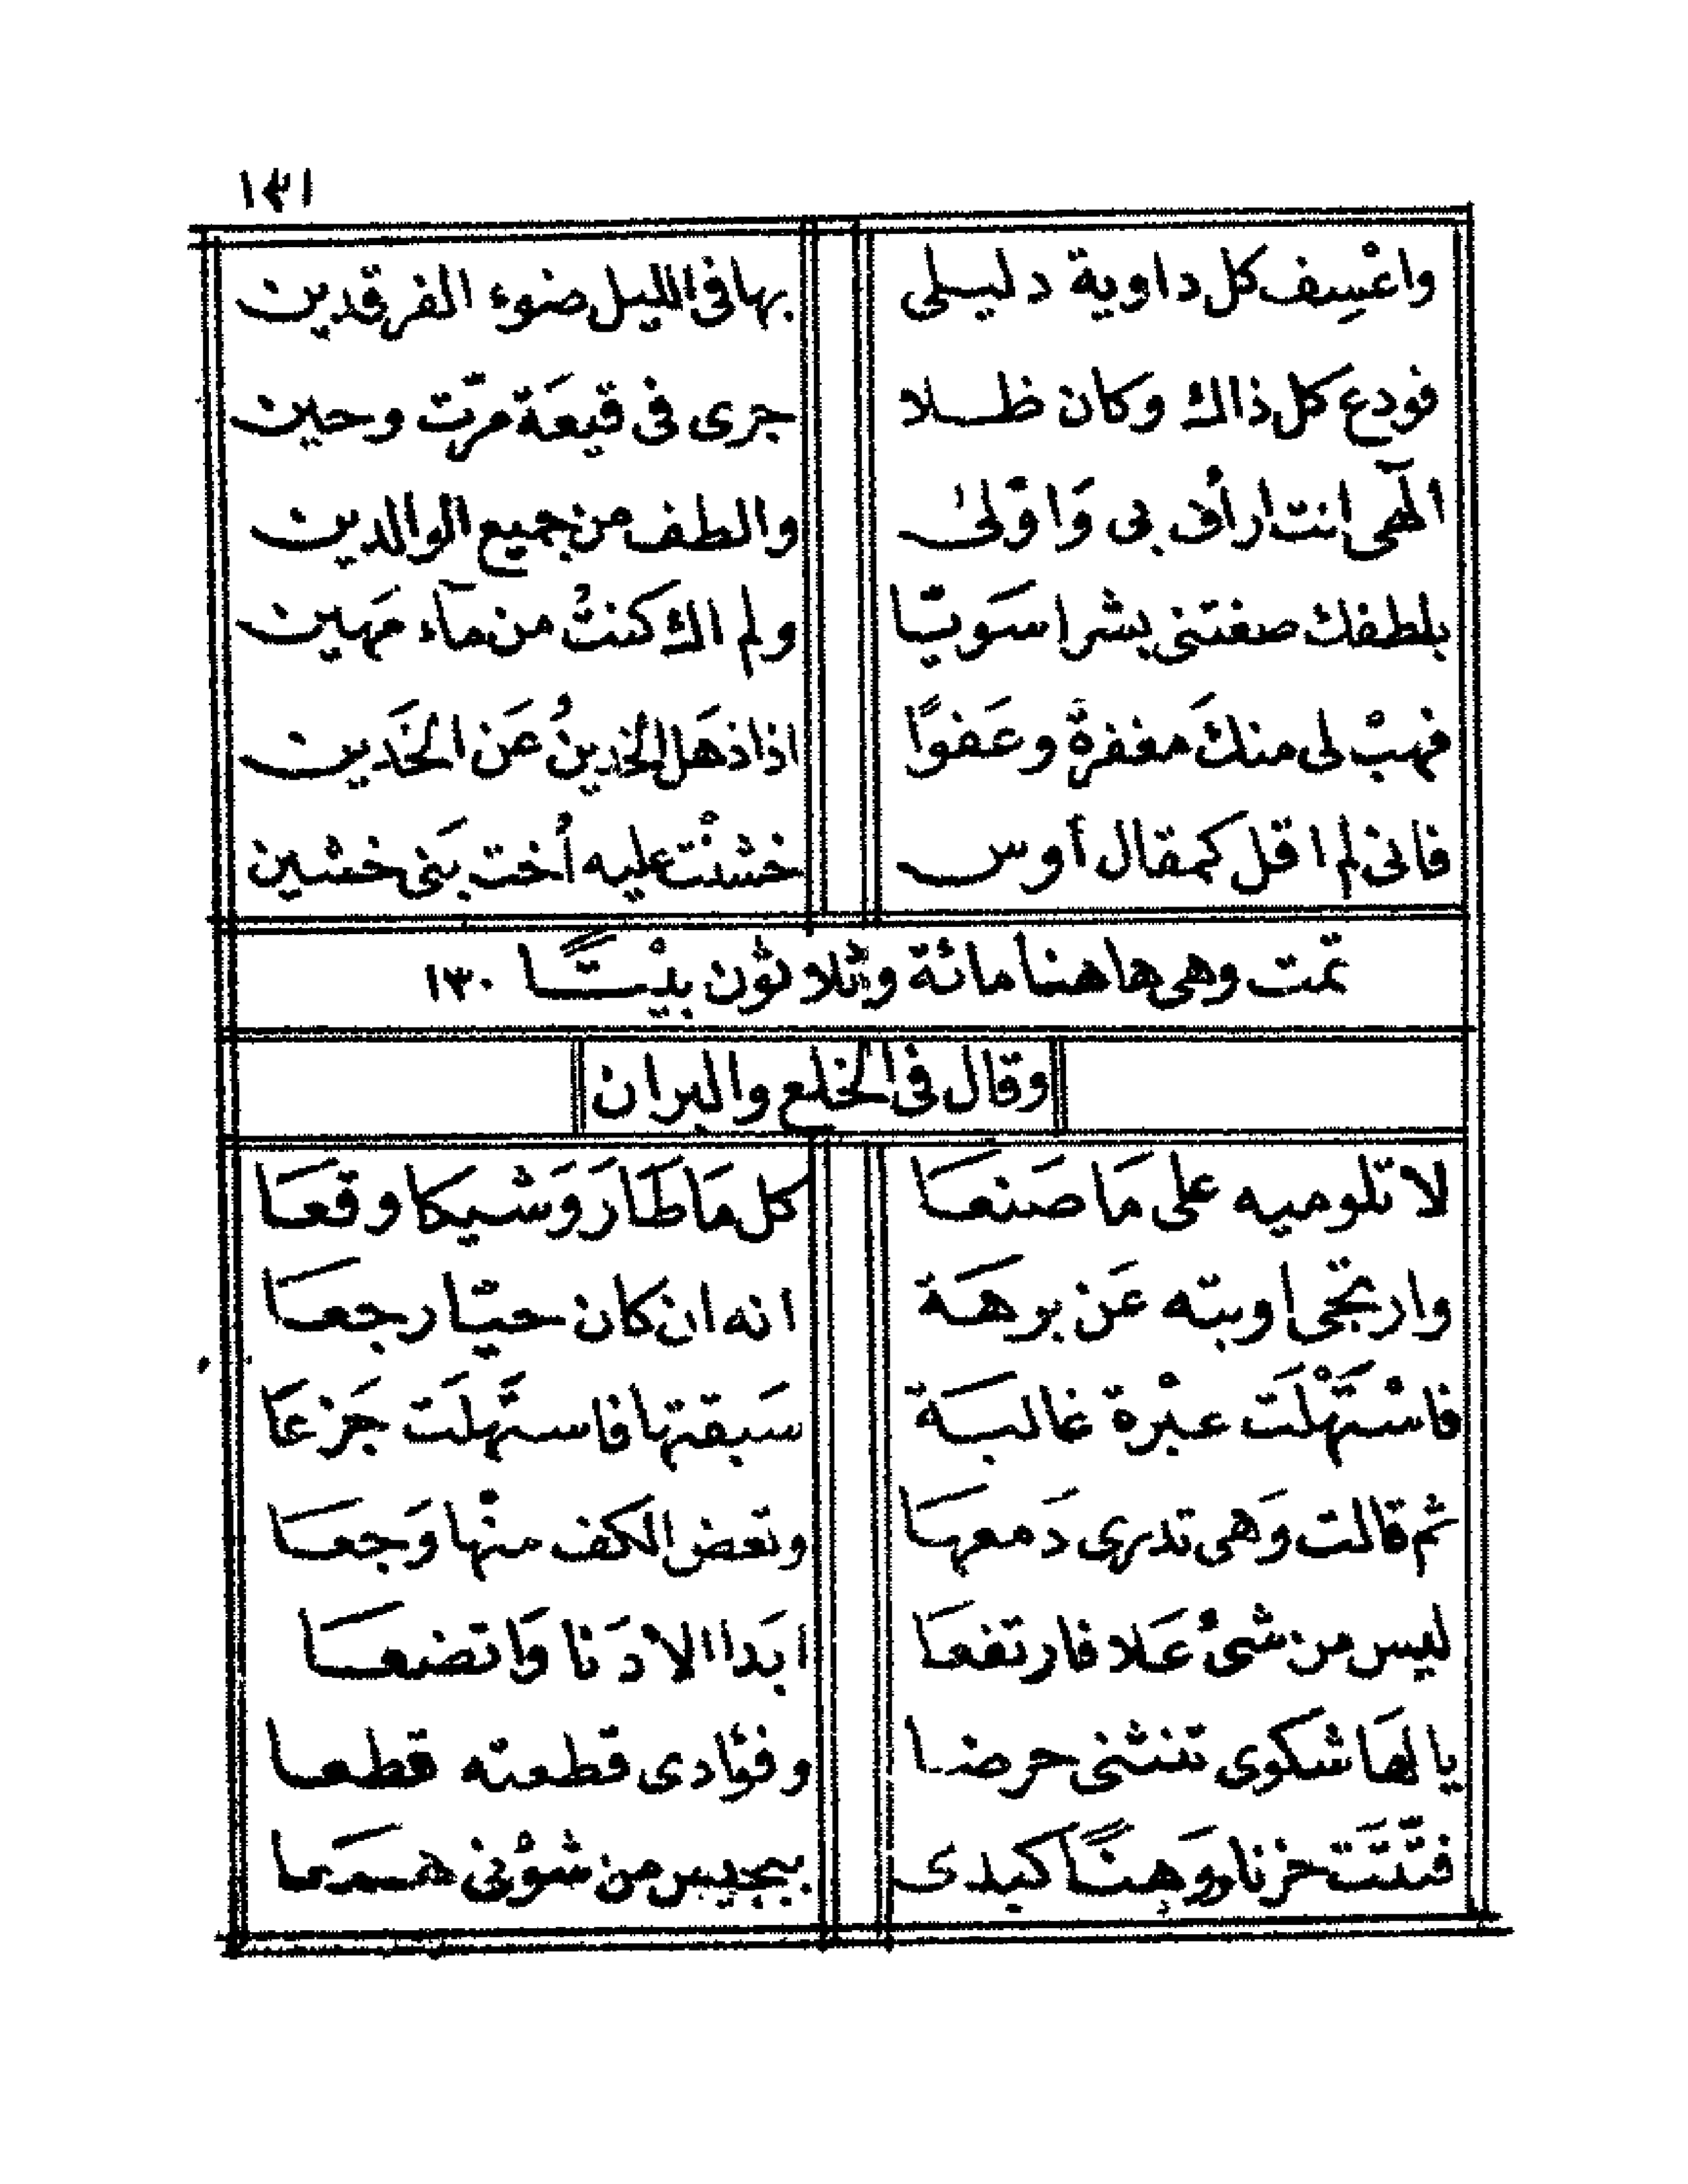 ١٣١
واعْسِف كل داوية دليلى بها فى الليل ضوء الفرقدين
فودع كل ذاك وكان ظلا جرى فى قيعَة مرّت وحين
آلهى انت ارأف بى وَاوّلىٰ والطف من جميع الوالدين
بلطفك صغتنى بشرا سَويّا ولم اك كنتُ من مآء مَهين
فهبْ لى منكَ مغفرةً وعَفوًا اذا ذهَل الخدينُ عَن الخَدين
فانى لم اقل كمقال أوس خشنْت عليه أخت بَنى خشين
تمت وهى هاهنا مائة وثلاثون بيْتًا ١٣٠
وقال فى الخلع والبران
لا تلوميه على مَا صَنعَا كل مَا طَارَ وَشيكا وقعَا
وارتجى اوبته عَن برهَة انه ان كان حيّا رجعَا
فاسْتَهْلَت عبْرة غالبَة سَبقتها فاستَهلَت جَزعَا
ثم قالت وَهى تذرى دَمعهَا وتعض الكف منْها وَجعَا
ليس من شئ عَلا فارتفعَا ابَدا الا دَنا وَاتضعَا
يا لهَا شكوى تنثنى حرضا وفؤادى قطعته قطعا
فتّتَت حزنا ووَهنًا كبدى ببجيس من شؤنى همَعا